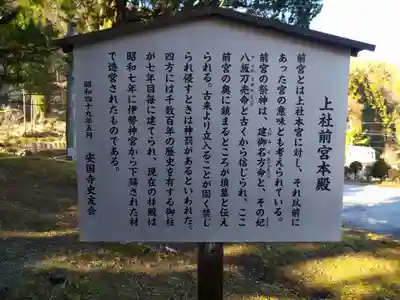 上社前宮本殿
前宮とは上社本宮に対し、それ以前に
あった宮の意味とも考えられている。
前宮の祭神は、建御名方命と、その妃
八坂刀売命と古くから信じられ、ここ
前宮の奥に鎮まるところが墳墓と伝え
られる。古来より立入ることが固く禁じ
られ侵すときは神罰があるといわれた。
四方には千数百年の歴史を有する御柱
が七年目毎に建てられ、現在の祥殿は
昭和七年に伊勢神宮から下賜された材
で造営されたものである。
昭和四十九年五月
安国寺史友会